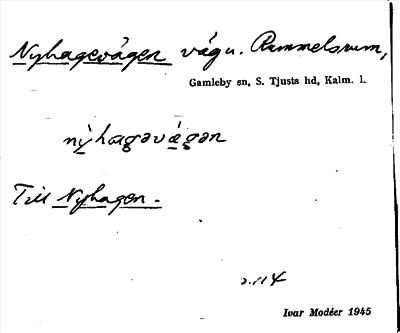 Nyhagevägen vägu. Rammelsrum,
Gamleby sn, S. Tjusts hd, Kalm. l.
nỳhagəvǽgən
Till Nyhagen.
Ivar Modéer 1945